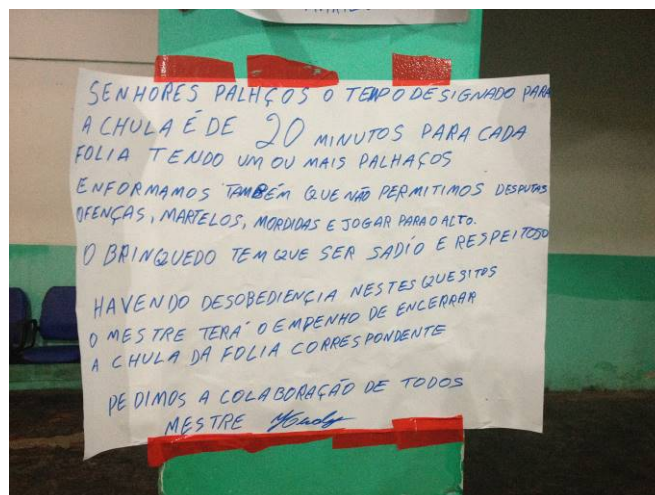 SENHORES PALHÇOS O TEMPO DESIGNADO PARA
A CHULA É DE 20 MINUTOS PARA CADA
FOLIA TENDO UM OU MAIS PALHAÇOS
ENFORMAMOS TAMBÉM QUE NÃO PERMITIMOS DESPUTAS
OFENÇAS, MARTELOS, MORDIDAS E JOGAR PARA O ALTO.
O BRINQUEDO TEM QUE SER SADIO E RESPEITOSO
HAVENDO DESOBEDIENÇIA NESTES QUESITOS
O MESTRE TERÁ O EMPENHO DE ENCERRAR
A CHULA DA FOLIA CORRESPONDENTE
PEDIMOS A COLABORAÇÃO DE TODOS
MESTRE